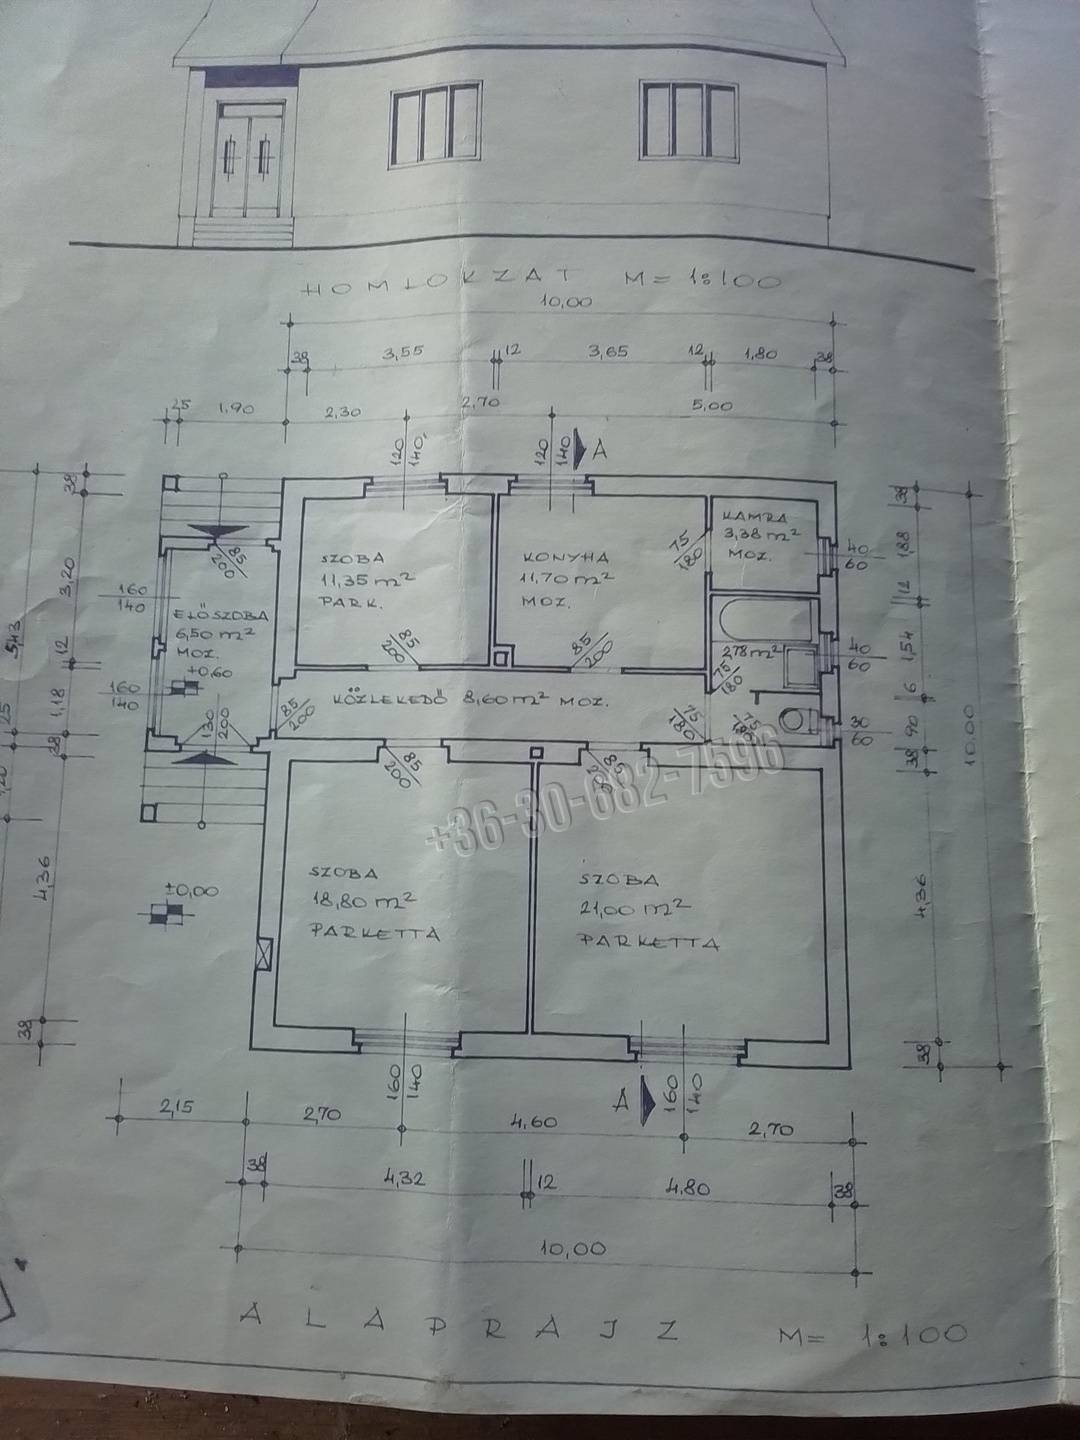 HOMLOKZAT M= 1:100
10,00
38 3,55 12 3,65 12 1,80 38
25 1,90 2,30 2,70 5,00
120
140
120
140
A
38 3,20 12 1,18 38 4,36 38
543
25
1,20
38 188 12 1,54 6 90 38 4,36 38
10,00
160
140
160
140
85
200
ELŐSZOBA
6,50 m²
MOZ.
±0,60
130
200
SZOBA
11,35 m²
PARK.
85
200
KONYHA
11,70 m²
MOZ.
85
200
75
180
KAMRA
3,38 m²
MOZ.
40
60
2,78 m²
75
180
40
60
30
60
85
200
KÖZLEKEDŐ 8,60 m² MOZ.
75
180
75
85
200
85
200
+36-30-682-7596
±0,00
SZOBA
18,80 m²
PARKETTA
SZOBA
21,00 m²
PARKETTA
160
140
A
160
140
2,15 2,70 4,60 2,70
38 4,32 12 4,80 38
10,00
ALAPRAJZ M= 1:100